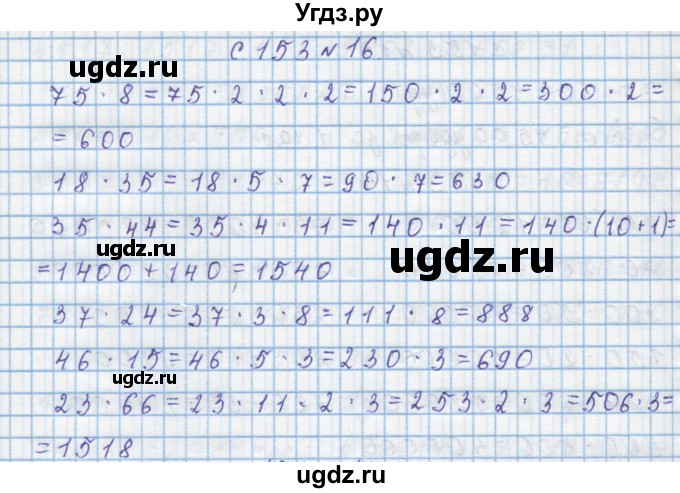 Угдз.ру
с 153 № 16
ugdz.ru
75 · 8 = 75 · 2 · 2 · 2 = 150 · 2 · 2 = 300 · 2 =
= 600
ugdz.ru
18 · 35 = 18 · 5 · 7 = 90 · 7 = 630
35 · 44 = 35 · 4 · 11 = 140 · 11 = 140 · (10 + 1) =
ugdz.ru
ugdz.ru
= 1400 + 140 = 1540
37 · 24 = 37 · 3 · 8 = 111 · 8 = 888
46 · 15 = 46 · 5 · 3 = 230 · 3 = 690
ugdz.ru
23 · 66 = 23 · 11 · 2 · 3 = 253 · 2 · 3 = 506 · 3 =
= 1518
ugdz.ru